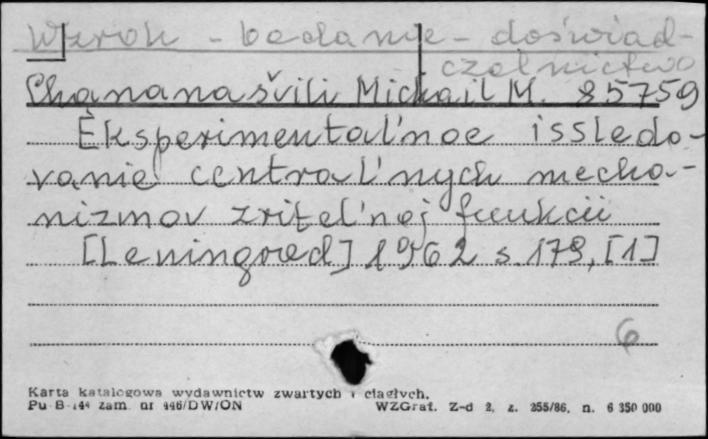 Wzrok - badanie - doświad-
czalnictwo
Chananašvili Michail M. 85759
Ėksperimental'noe issledo-
vanie central'nych mecha-
nizmov zritel'noj funkcii
[Leningrad] 1962 s. 178, [1]
6
Karta katalogowa wydawnictw zwartych i ciągłych.
Pu-B-144 zam. nr 446/DW/ON WZGraf. Z-d 2, z. 255/86, n. 6 350 000